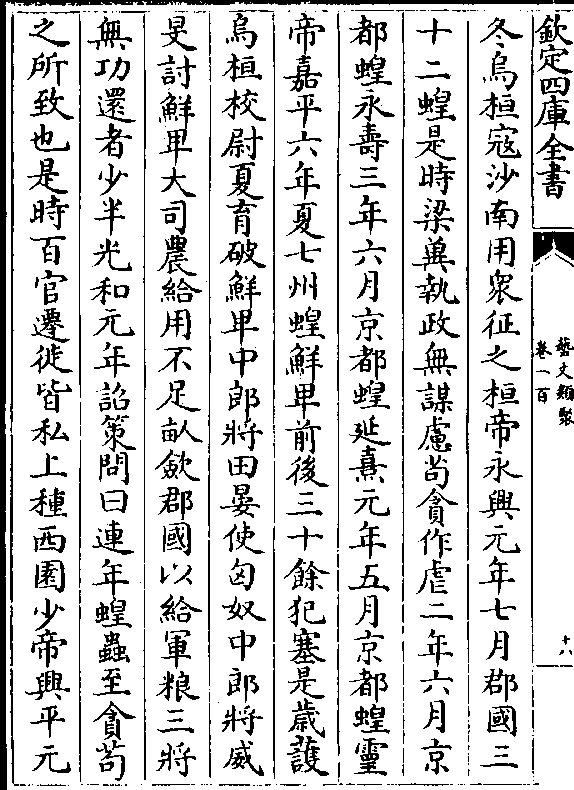 欽定四庫全書
藝文類聚
卷一百
十八
冬烏桓寇沙南用衆征之桓帝永興元年七月郡國三
十二蝗是時梁兾執政無謀慮茍貪作虐二年六月京
都蝗永壽三年六月京都蝗延熹元年五月京都蝗靈
帝嘉平六年夏七州蝗鮮卑前後三十餘犯塞是歳護
烏桓校尉夏育破鮮卑中郎將田晏使匈奴中郎將威
旻討鮮卑大司農給用不足畝斂郡國以給軍粮三將
無功還者少半光和元年詔策問曰連年蝗蟲至貪茍
之所致也是時百官遷徙皆私上種西園少帝興平元